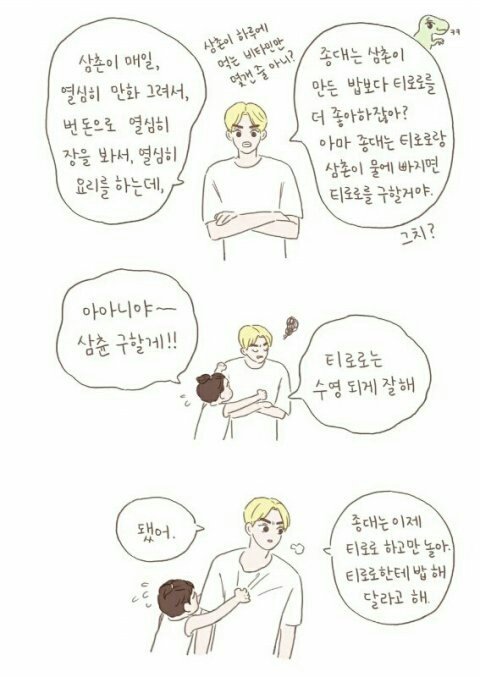 삼촌이 매일,
열심히 만화 그려서,
번 돈으로 열심히
장을 봐서, 열심히
요리를 하는데,
삼촌이 하루에
먹는 비타민만
몇갠 줄 아니?
ㅋㅋ
종대는 삼촌이
만든 밥보다 티로로를
더 좋아하잖아?
아마 종대는 티로로랑
삼촌이 물에 빠지면
티로로를 구할거야.
그치?
아아니야~
삼츈 구할게!!
티로로는
수영 되게 잘해
됐어.
종대는 이제
티로로 하고만 놀아.
티로로한테 밥 해
달라고 해.